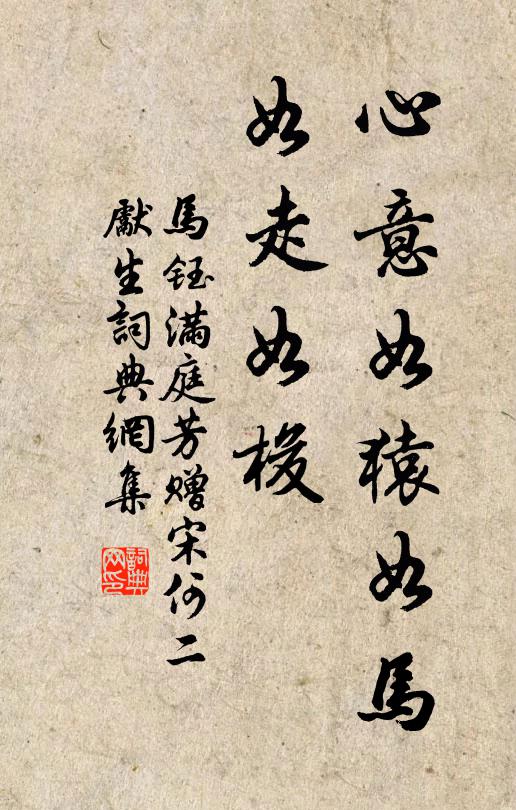 心意如猿如馬
如走如梭
馬鈺滿庭芳贈宋何二
獻生詞典網集
詞典
网印